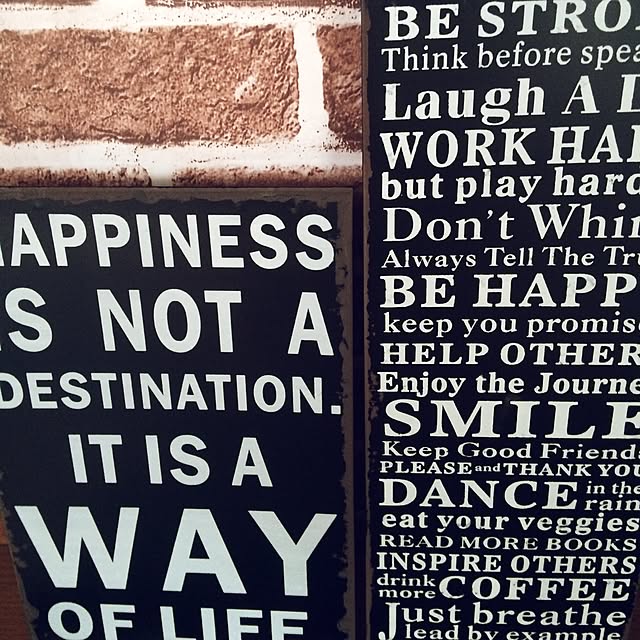 HAPPINESS
IS NOT A
DESTINATION.
IT IS A
WAY
OF LIFE
BE STRO
Think before spea
Laugh A L
WORK HAR
but play hard
Don't Whin
Always Tell The Tru
BE HAPP
keep you promis
HELP OTHER
Enjoy the Journe
SMILE
Keep Good Friends
PLEASE and THANK YOU
DANCE in the rain
eat your veggies
READ MORE BOOKS
INSPIRE OTHERS
drink more COFFEE
Just breathe
lead by example